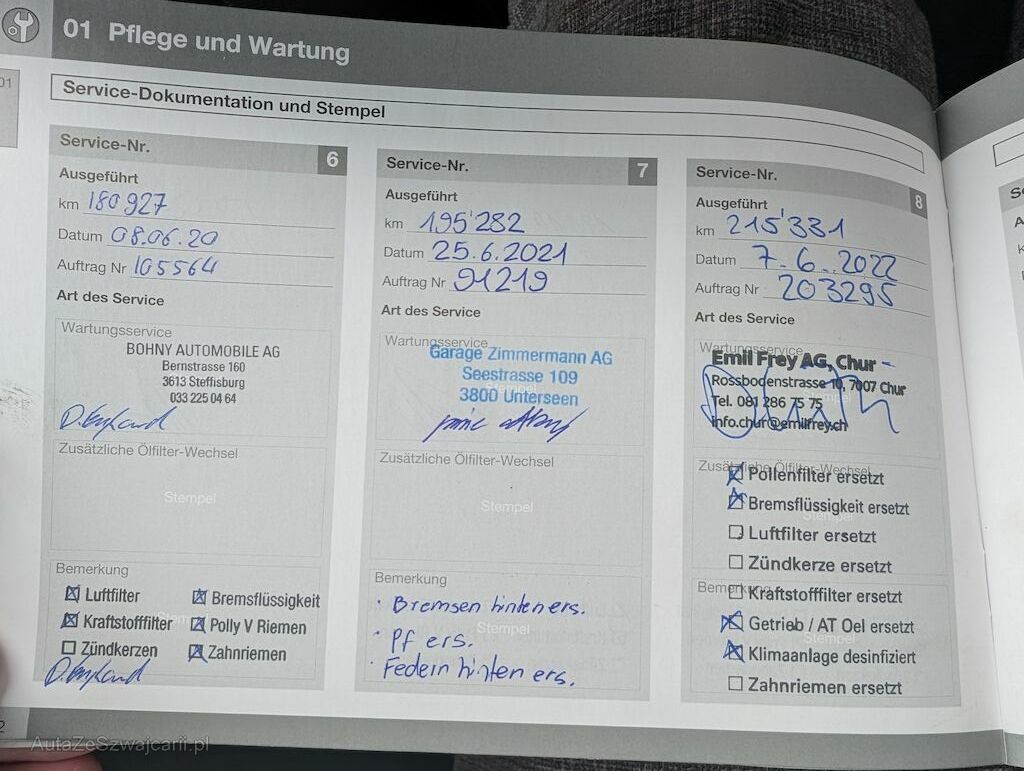 01 Pflege und Wartung
01
Service-Dokumentation und Stempel
Service-Nr. 6
Ausgeführt
km 180927
Datum 08.06.20
Auftrag Nr 105564
Art des Service
Wartungsservice
BOHNY AUTOMOBILE AG
Bernstrasse 160
3613 Steffisburg
033 225 04 64
Zusätzliche Ölfilter-Wechsel
Stempel
Bemerkung
Luftfilter
Bremsflüssigkeit
Kraftstofffilter
Polly V Riemen
Zündkerzen
Zahnriemen
Service-Nr. 7
Ausgeführt
km 195'282
Datum 25.6.2021
Auftrag Nr 91219
Art des Service
Wartungsservice
Garage Zimmermann AG
Seestrasse 109
3800 Unterseen
Zusätzliche Ölfilter-Wechsel
Stempel
Bemerkung
· Bremsen hinten ers.
Stempel
· Pf ers.
· Federn hinten ers.
Service-Nr. 8
Ausgeführt
km 215'331
Datum 7.6.2022
Auftrag Nr 203295
Art des Service
Wartungsservice
Emil Frey AG, Chur
Rossbodenstrasse 10, 7007 Chur
Tel. 081 286 75 75
info.chur@emilfrey.ch
Zusätzliche Ölfilter-Wechsel
Pollenfilter ersetzt
Bremsflüssigkeit ersetzt
Stempel
Luftfilter ersetzt
Zündkerze ersetzt
Bemerkung
Kraftstofffilter ersetzt
Getrieb / AT Oel ersetzt
Klimaanlage desinfiziert
Zahnriemen ersetzt
2
AutaZeSzwajcarii.pl